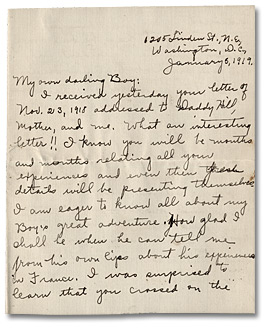 1205 Linden St., N.E.,
Washington, D.C.,
January 5, 1919.
My own darling Boy:
I received yesterday your letter of
Nov. 23, 1918 addressed to Daddy Hill
Mother, and me. What an interesting
letter!! I know you will be months
and months relating all your
experiences and even then fresh
details will be presenting themselves
I am eager to know all about my
Boy's great adventure. How glad I
shall be when he can tell me
from his own lips about his experiences
in France. I was surprised to
learn that you crossed on the